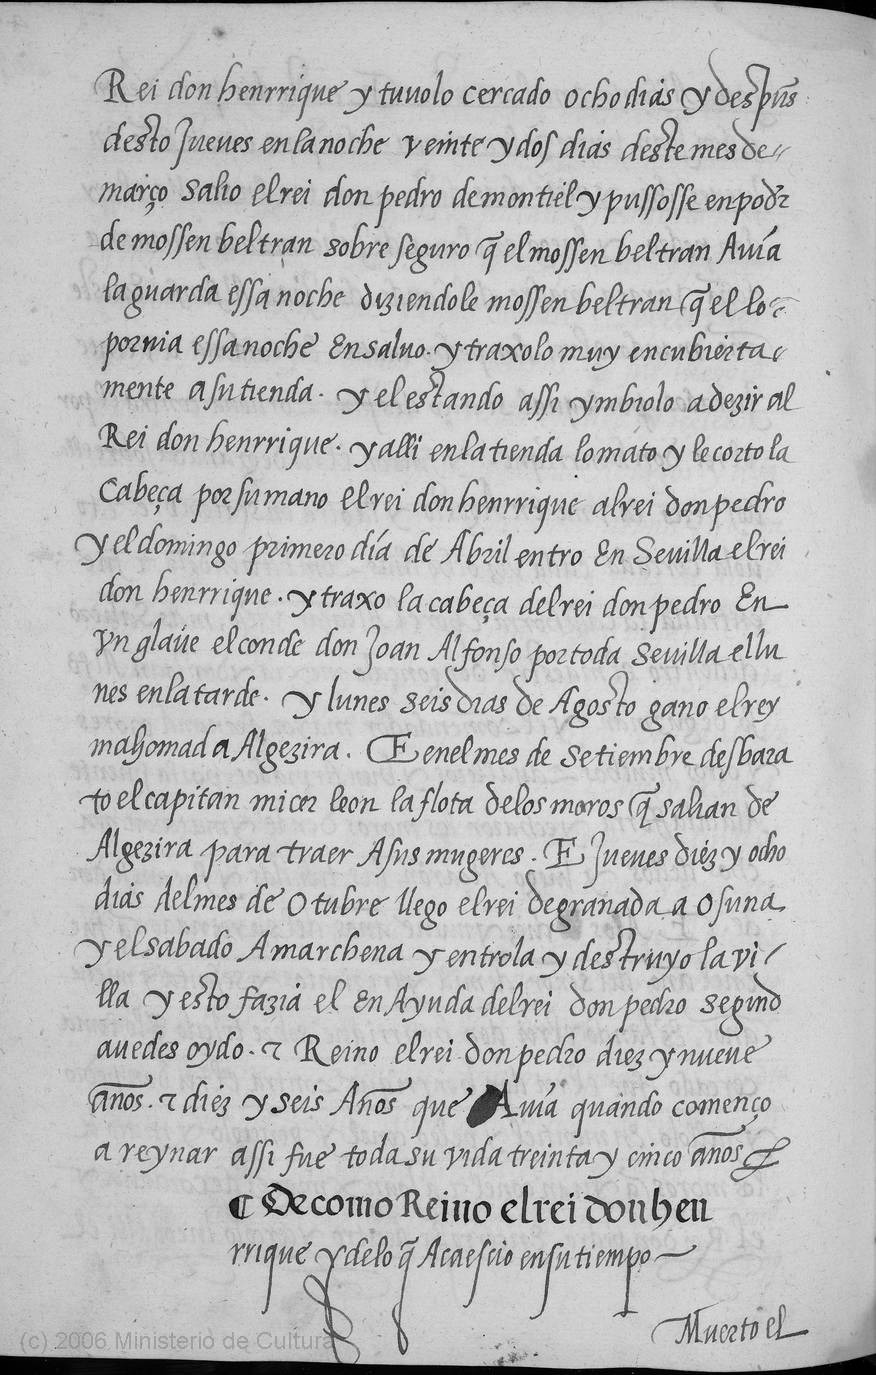 Rei don henrrique y tuuolo cercado ocho dias y despũs
desto Jueves en la noche veinte y dos dias deste mes de
março salio el rei don pedro de montiel y pussosse en podr
de mossen beltran sobre seguro q̃ el mossen beltran Auia
la guarda essa noche diziendole mossen beltran q̃ el lo
pornia essa noche En saluo. y traxolo muy encubierta
mente a su tienda. y el estando assi ymbiolo a dezir al
Rei don henrrique. y alli en la tienda lo mato y le corto la
Cabeça por su mano el rei don henrrique al rei don pedro
y el domingo primero día de Abril entro En Sevilla el rei
don henrrique. y traxo la cabeça del rei don pedro En
vn glaue el conde don Joan Alfonso por toda Sevilla el lu
nes en la tarde. y lunes seis dias de Agosto gano el rey
mahomad a Algezira. E en el mes de setiembre desbara
to el capitan micer leon la flota de los moros q̃ salian de
Algezira para traer A sus mugeres. E Jueves diez y ocho
dias del mes de Otubre llego el rei de granada a Osuna
y el sabado A marchena y entrola y destruyo la vi
lla y esto fazia el En Ayuda del rei don pedro segund
auedes oydo. ⁊ Reino el rei don pedro diez y nueve
años. ⁊ diez y seis Años que Auia quando començo
a reynar assi fue toda su vida treinta y cinco años
¶ De como Reino el rei don hen
rrique y de lo q̃ Acaescio en su tiempo
Muerto el
(c) 2006 Ministerio de Cultura